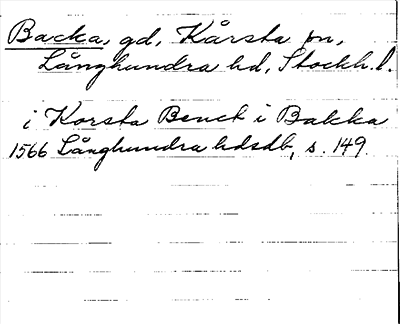 Backa, gd, Kårsta sn,
Långhundra hd, Stockh. l.
i Korsta Benct i Bakka
1566 Långhundra hdsdb, s. 149.